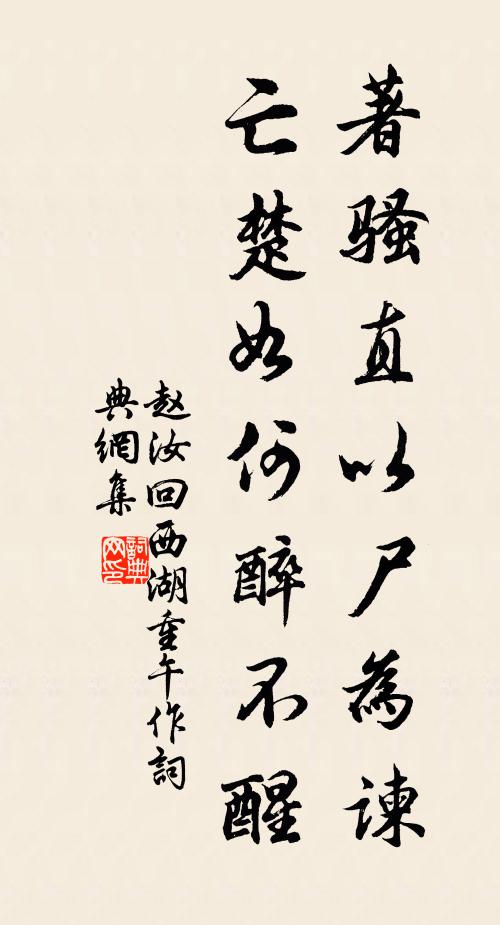 著骚直以尸為諫
亡楚如何醉不醒
赵汝回西湖重午作詞
典網集
詞典网印